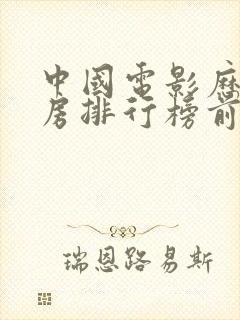 中國電影歷
房排行榜前
瑞恩路易斯